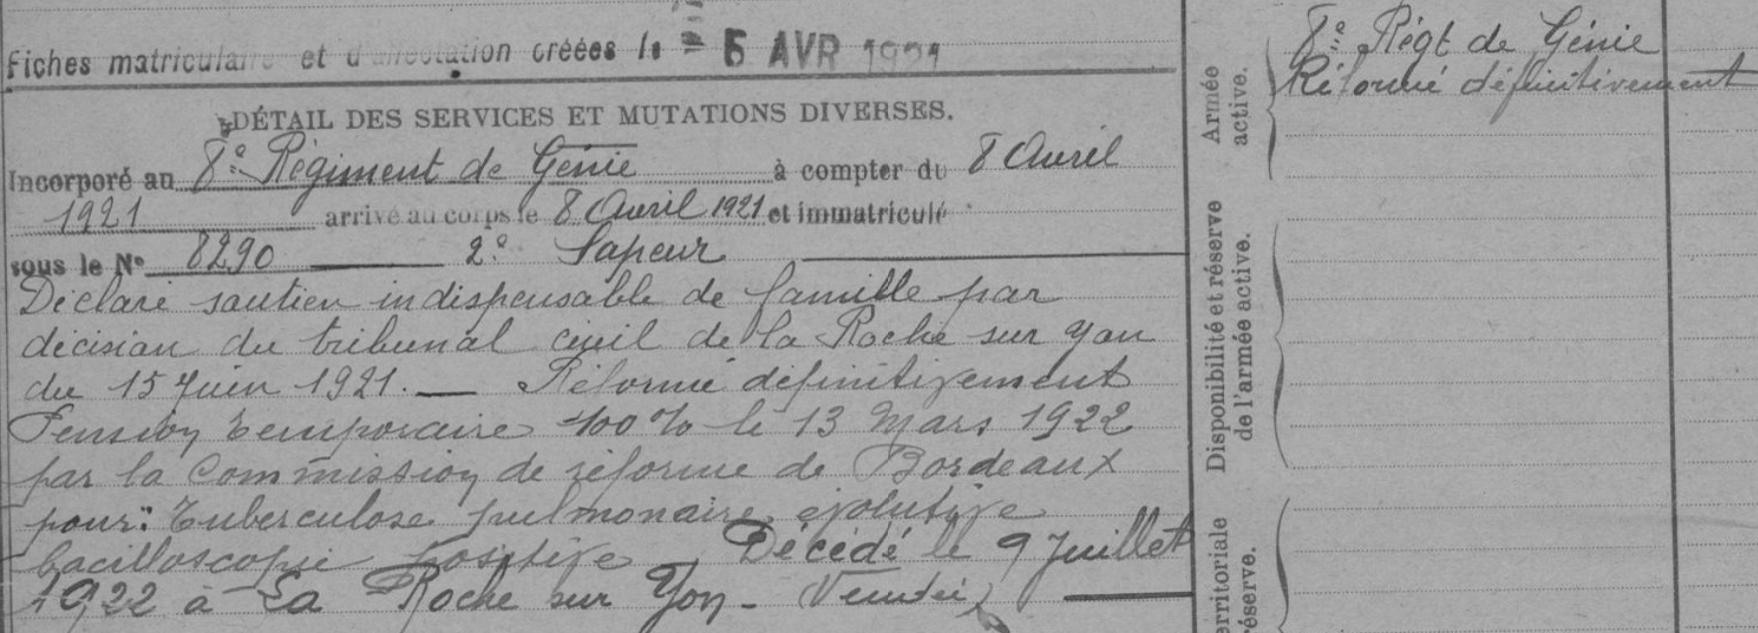 Fiches matriculaire et d'affectation créées le 5 AVR 1921
DÉTAIL DES SERVICES ET MUTATIONS DIVERSES.
Incorporé au 8e Régiment de Génie à compter du 8 Avril
1921 arrivé au corps le 8 Avril 1921 et immatriculé
sous le No 8290 2e Sapeur
Déclaré soutien indispensable de famille par
décision du tribunal civil de la Roche sur Yon
du 15 Juin 1921. — Réformé définitivement
Pension temporaire 100% le 13 Mars 1922
par la Commission de réforme de Bordeaux
pour: Tuberculose pulmonaire évolutive
bacilloscopie positive Décédé le 9 Juillet
1922 à La Roche sur Yon - (Vendée)
Armée
active.
8e Régt de Génie
Réformé définitivement
Disponibilité et réserve
de l'armée active.
erritoriale
réserve.